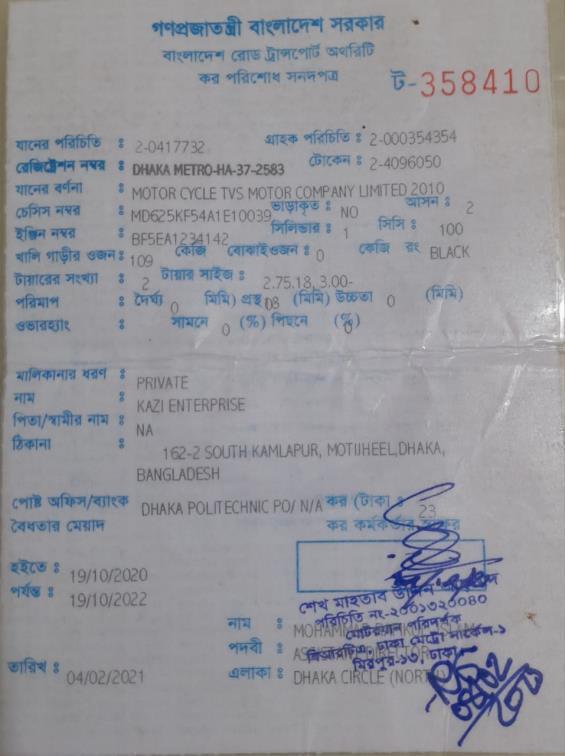 গণপ্রজাতন্ত্রী বাংলাদেশ সরকার
বাংলাদেশ রোড ট্রান্সপোর্ট অথরিটি
কর পরিশোধ সনদপত্র
ট-358410
যানের পরিচিতি : 2-0417732 গ্রাহক পরিচিতি : 2-000354354
রেজিষ্ট্রেশন নম্বর : DHAKA METRO-HA-37-2583 টোকেন : 2-4096050
যানের বর্ণনা : MOTOR CYCLE TVS MOTOR COMPANY LIMITED 2010
চেসিস নম্বর : MD625KF54A1E10039 ভাড়াকৃত : NO আসন : 2
ইঞ্জিন নম্বর : BF5EA1234142 সিলিন্ডার : 1 সিসি : 100
খালি গাড়ীর ওজন : 109 কেজি বোঝাইওজন : 0 কেজি রং BLACK
টায়ারের সংখ্যা : 2 টায়ার সাইজ : 2.75.18, 3.00-
পরিমাপ : দৈর্ঘ্য 0 (মিমি) প্রস্থ 08 (মিমি) উচ্চতা 0 (মিমি)
ওভারহ্যাং : সামনে 0 (%) পিছনে 0 (%)
মালিকানার ধরণ : PRIVATE
নাম : KAZI ENTERPRISE
পিতা/স্বামীর নাম : NA
ঠিকানা : 162-2 SOUTH KAMLAPUR, MOTIJHEEL,DHAKA,
BANGLADESH
পোষ্ট অফিস/ব্যাংক DHAKA POLITECHNIC PO/ N/A কর (টাকা) : 23
বৈধতার মেয়াদ কর কর্মকর্তার
হইতে : 19/10/2020
পর্যন্ত : 19/10/2022
শেখ মাহতাব উদ্দিন
পরিচিতি নং-২০০১৩২০০৪০
মোটরযান পরিদর্শক
বিআরটিএ, ঢাকা মেট্রো সার্কেল-১
মিরপুর-১৩, ঢাকা
নাম :
পদবী : DIRECTOR
তারিখ : 04/02/2021 এলাকা : DHAKA CIRCLE (NORTH)